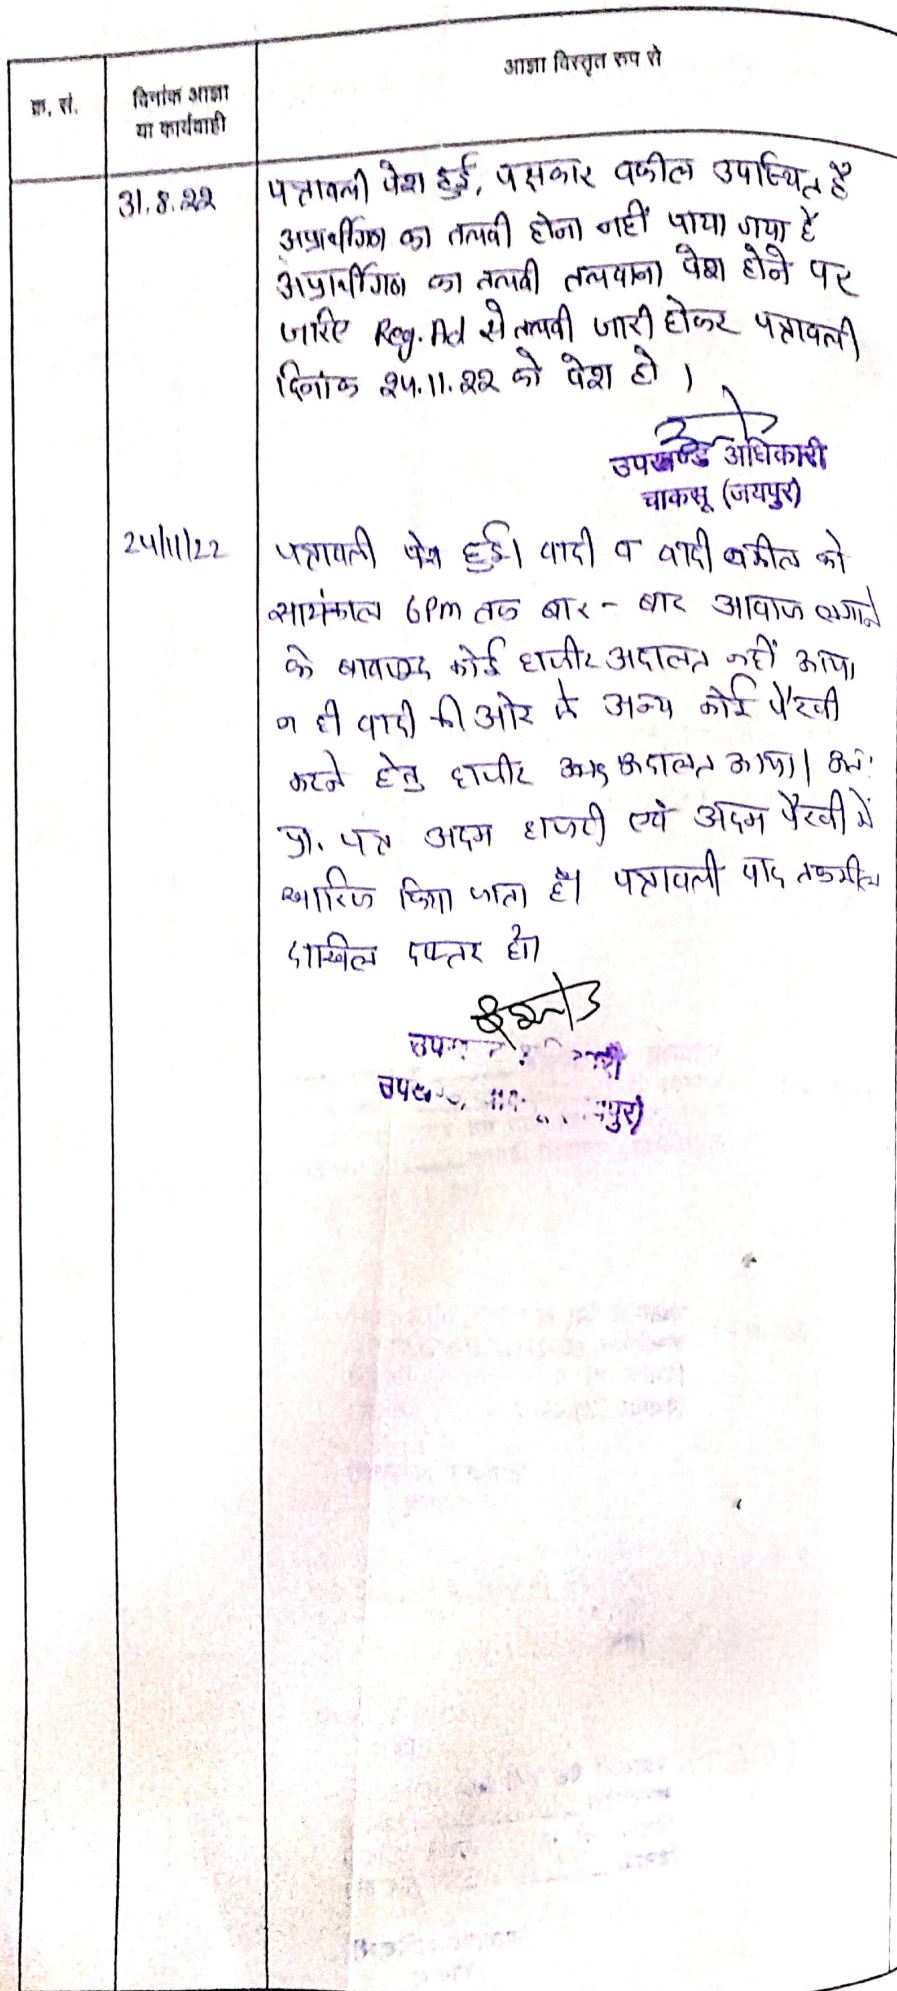 क्र. सं.
दिनांक आज्ञा
या कार्यवाही
आज्ञा विस्तृत रूप से
31.8.22
पत्रावली पेश हुई, पक्षकार वकील उपस्थित है
अप्रार्थीगण का तलबी होना नहीं पाया गया है
अप्रार्थीगण का तलबी तलवाना पेश होने पर
जरिए Reg. Ad से तलबी जारी होकर पत्रावली
दिनांक 24.11.22 को पेश हो ।
उपखण्ड अधिकारी
चाकसू (जयपुर)
24/11/22
पत्रावली पेश हुई। वादी व वादी वकील को
सायंकाल 6Pm तक बार - बार आवाज लगाने
के बावजूद कोई हाजीर अदालत नहीं आया
न ही वादी की ओर से अन्य कोई पैरवी
करने हेतु हाजीर अदालत आया। अतः
प्रा. पत्र अदम हाजरी एवं अदम पैरवी में
खारिज किया जाता है। पत्रावली बाद तकमील
दाखिल दफ्तर हो।